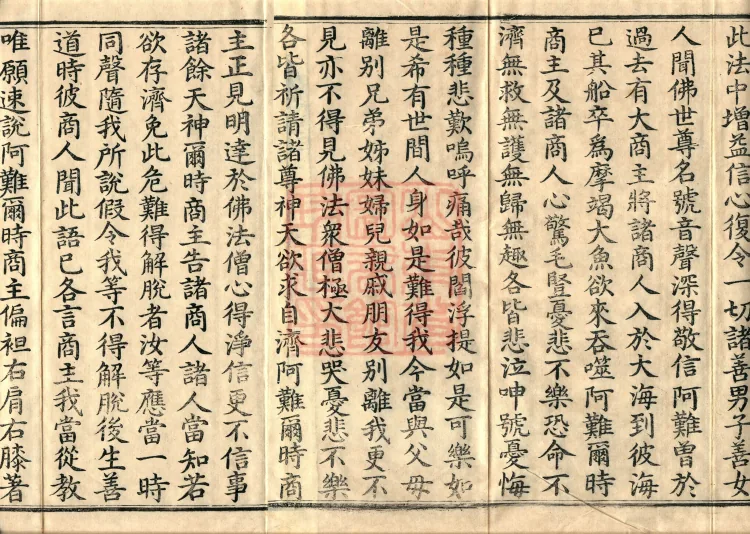 此法中增益信心復令一切諸善男子善女
人聞佛世尊名號音聲深得敬信阿難曾於
過去有大商主將諸商人入於大海到彼海
已其船卒為摩竭大魚欲來吞噬阿難爾時
商主及諸商人心驚毛豎憂悲不樂恐命不
濟無救無護無歸無趣各皆悲泣呻號憂悔
種種悲歎嗚呼痛哉彼閻浮提如是可樂如
是希有世間人身如是難得我今當與父母
離別兄弟姊妹婦兒親戚朋友別離我更不
見亦不得見佛法衆僧極大悲哭憂悲不樂
各皆祈請諸尊神天欲求自濟阿難爾時商
主正見明達於佛法僧心得淨信更不信事
諸餘天神爾時商主告諸商人諸人當知若
欲存濟免此危難得解脫者汝等應當一時
同聲隨我所說假令我等不得解脫後生善
道時彼商人聞此語已各言商主我當從教
唯願速說阿難爾時商主偏袒右肩右膝著